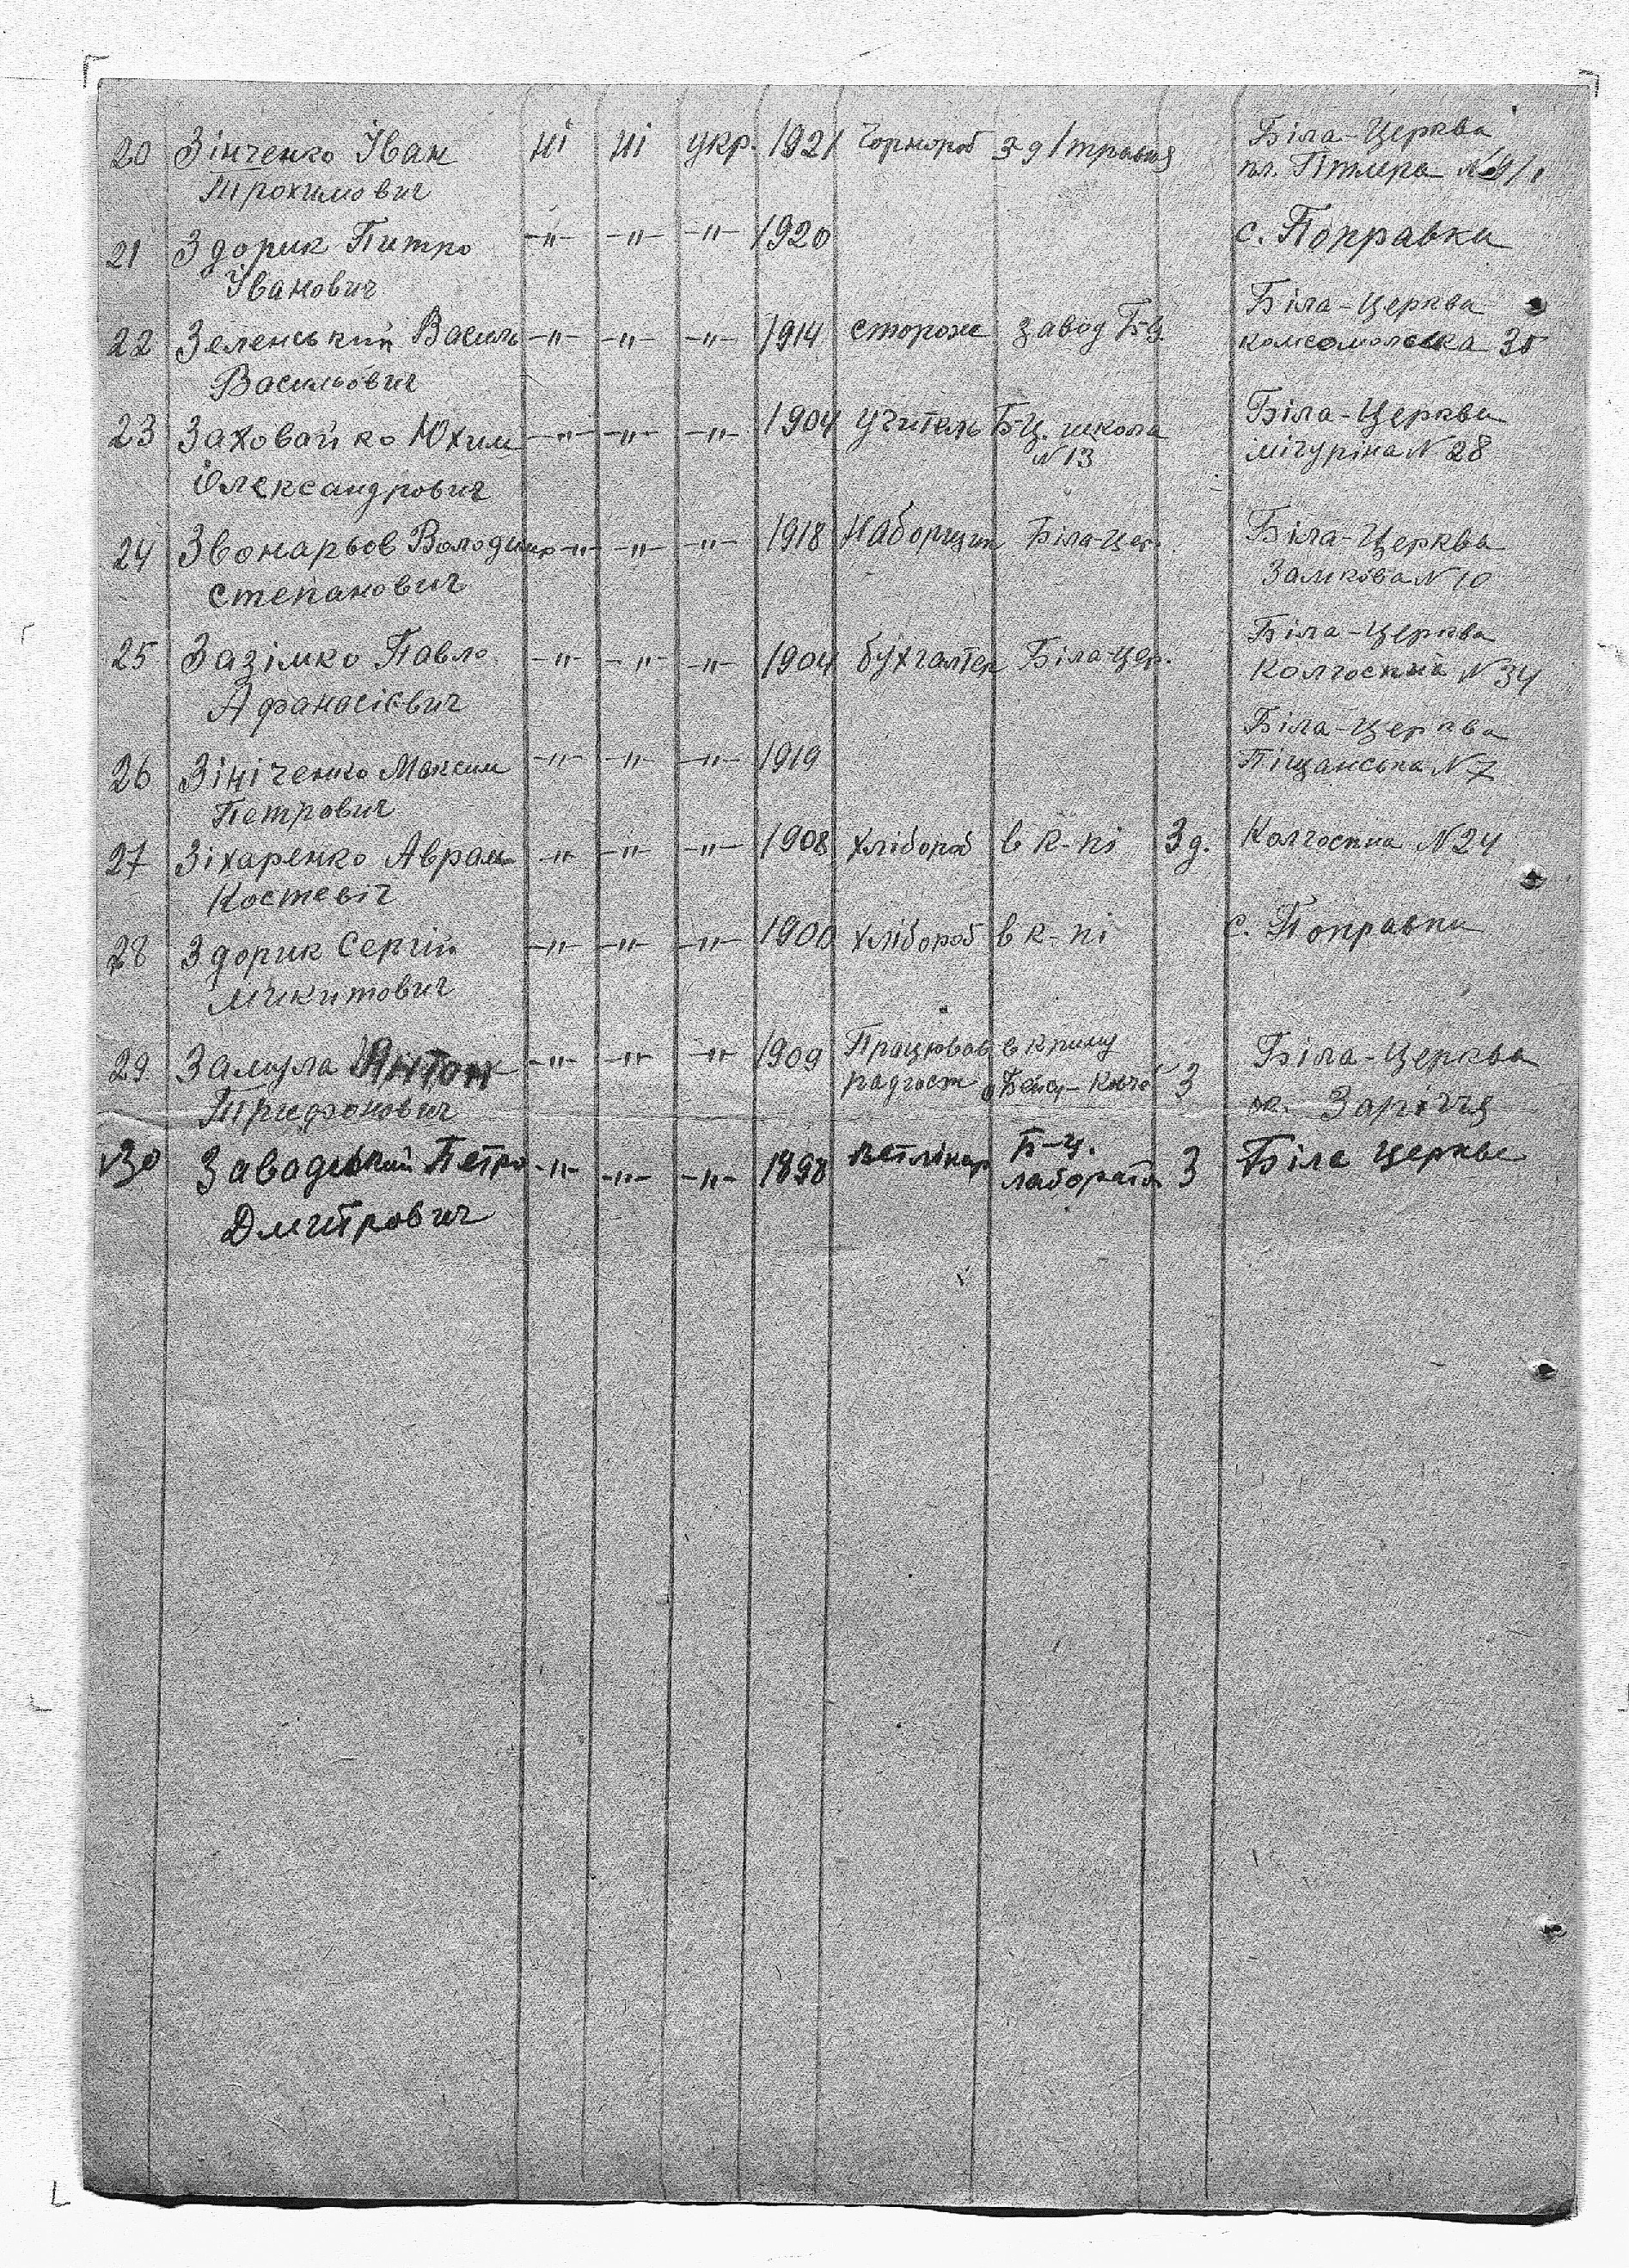 20 Зінченко Іван ні ні укр. 1921 Чорнороб Біла-Церква
Трохимович пл. Гітлера №
21 Здорик Питро -"- -"- -"- 1920 с. Поправка
Іванович
22 Зеленський Василь -"- -"- -"- 1914 сторож завод Б-Ц. Біла-Церква
Васильович комсомольска 35
23 Заховайко Юхим -"- -"- -"- 1904 учитель Б-Ц. школа Біла-Церква
Олександрович №13 мічуріна № 28
24 Звонарьов Володимир -"- -"- -"- 1918 Наборщик Біла-Цер. Біла-Церква
Степанович Замкова № 10
25 Зазімко Павло -"- -"- -"- 1904 бухгалтер Біла-цер. Біла-Церква
Афанасієвич Колгоспна № 34
26 Зініченко Максим -"- -"- -"- 1919 Біла-Церква
Петрович Піщанська № 7
27 Зіхаренко Аврам -"- -"- -"- 1908 хлібороб в к-пі 3 д. Колгоспна № 24
Костевіч
28 Здорик Сергій -"- -"- -"- 1900 хлібороб в к-пі с. Поправка
Микитович
29 Замула Антон -"- -"- -"- 1909 Працював в криму 3 Біла-Церква
Трифонович радгосп Заріччя
30 Заводський Петро -"- -"- -"- 1898 ветлікар Б-Ц. 3 Біла Церква
Дмитрович лаборато